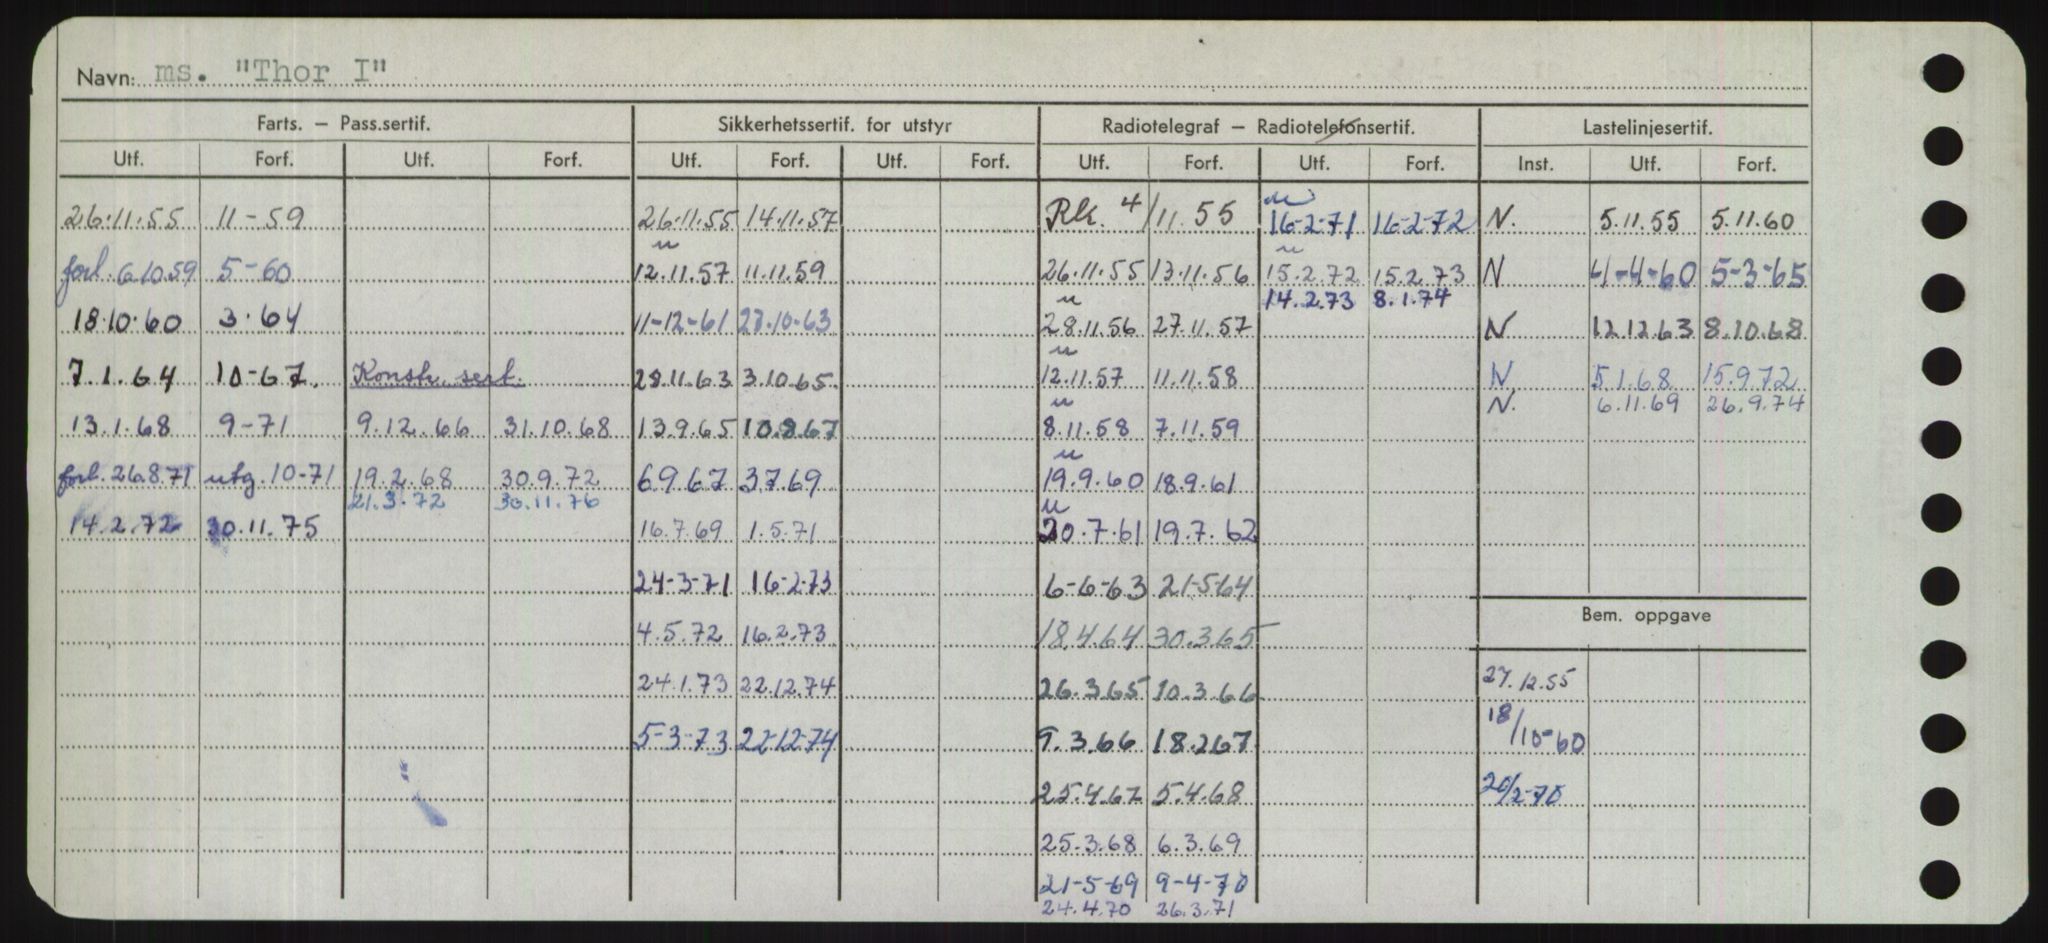 Navn: ms. "Thor I"
Farts. – Pass.sertif. Sikkerhetssertif. for utstyr Radiotelegraf – Radiotelefonsertif. Lastelinjesertif.
Utf. Forf. Utf. Forf. Utf. Forf. Utf. Forf. Utf. Forf. Utf. Forf. Inst. Utf. Forf.
26.11.55 11-59 26.11.55 14.11.57 Rk. 4/11.55 16-2-71 16-2-72 N. 5.11.55 5.11.60
forl. 6.10.59 5-60 12.11.57 11.11.59 26.11.55 13.11.56 15.2.72 15.2.73 N 4-4-60 5-3-65
14.2.73 8.1.74
18.10.60 3.64 11-12-61 27.10.63 28.11.56 27.11.57 N 12.12.63 8.10.68
7.1.64 10-67. Konstr. sert. 28.11.63 3.10.65 12.11.57 11.11.58 N 5.1.68 15.9.72
N. 6.11.69 26.9.74
13.1.68 9-71 9.12.66 31.10.68 13.9.65 10.8.67 8.11.58 7.11.59
forl. 26.8.71 utg. 10-71 19.2.68 30.9.72 6.9.67 3.7.69 19.9.60 18.9.61
21.3.72 30.11.76
14.2.72 30.11.75 16.7.69 1.5.71 20.7.61 19.7.62
24-3-71 16-2-73 6-6-63 21-5-64
Bem. oppgave
4.5.72 16.2.73 18.4.64 30.3.65
24.1.73 22.12.74 26.3.65 10.3.66 27.12.55
5-3-73 22-12-74 9.3.66 18.2.67 18/10-60
25.4.67 5.4.68 20/2-70
25.3.68 6.3.69
21-5-69 9-4-70
24.4.70 26.3.71